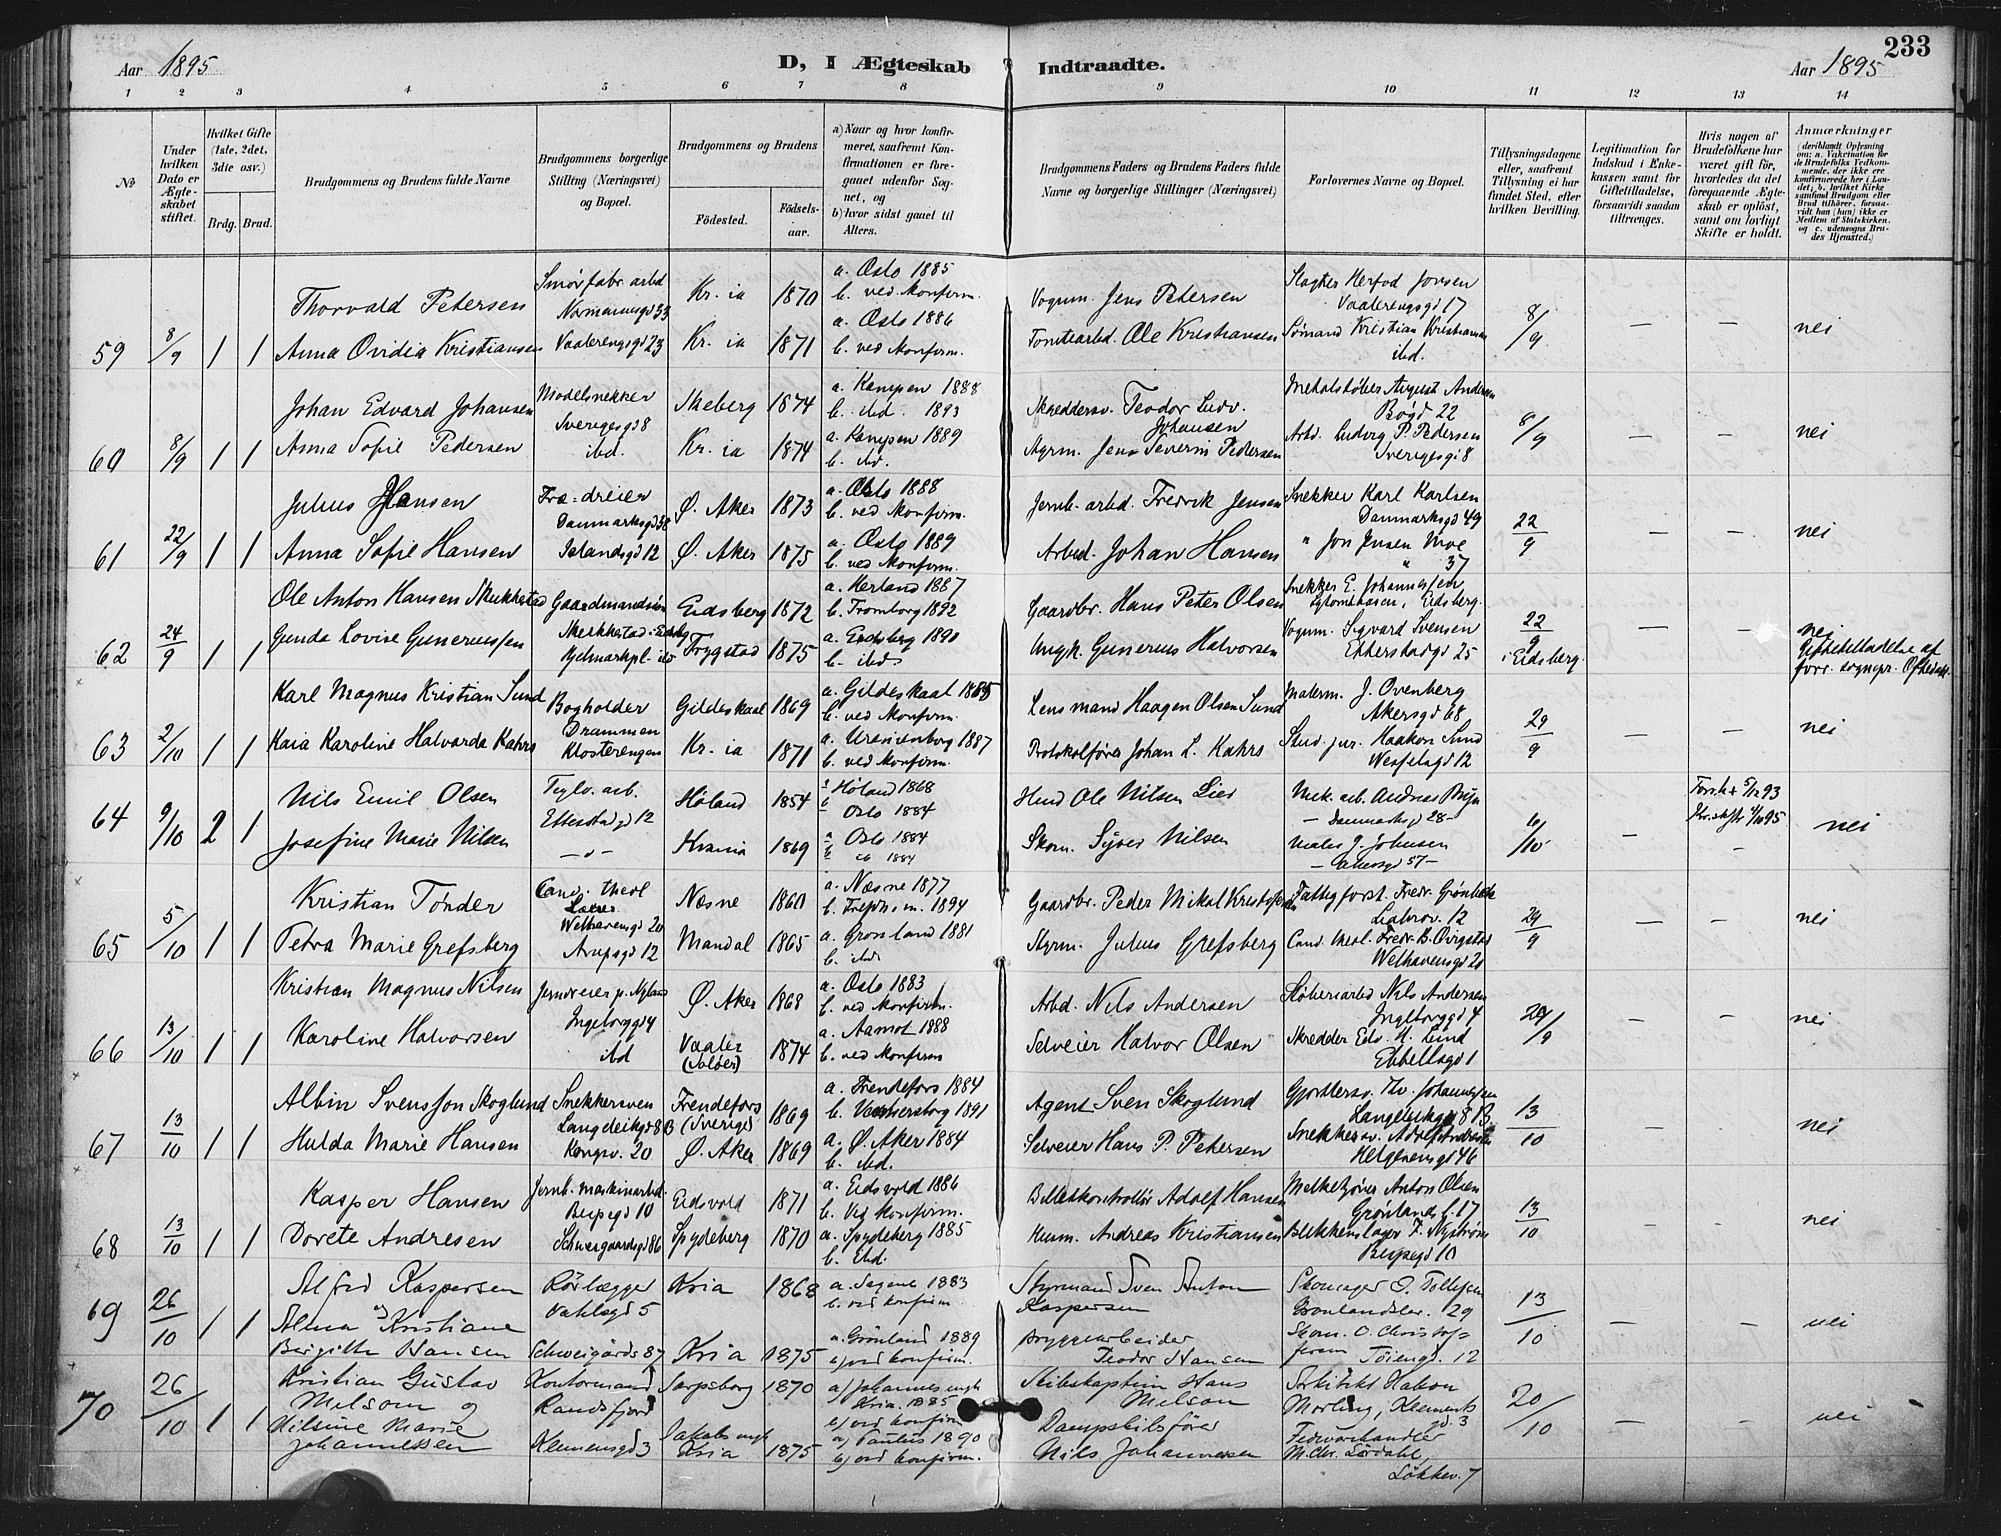 233
Aar 1895
D, I Ægteskab Indtraadte.
Aar 1895
1 2 3 4 5 6 7 8 9 10 11 12 13 14
No
Under hvilken Dato er Ægteskabet stiftet.
Hvilket Gifte (1ste, 2det, 3die osv.)
Brdg. Brud.
Brudgommens og Brudens fulde Navne
Brudgommens borgerlige Stilling (Næringsvei) og Bopæl.
Brudgommens og Brudens
Födested.
Födselsaar.
a) Naar og hvor konfirmeret, saafremt Konfirmationen er foregaaet udenfor Sognet, og
b) hvor sidst gaaet til Alters.
Brudgommens Faders og Brudens Faders fulde Navne og borgerlige Stillinger (Næringsvei)
Forlovernes Navne og Bopæl.
Tillysningsdagene eller, saafremt Tillysning ei har fundet Sted, efter hvilken Bevilling.
Legitimation for Indskud i Enkekassen samt for Giftetilladelse, forsaavidt saadan tiltrænges.
Hvis nogen af Brudefolkene har været gift för, hvorledes da det foregaaende Ægteskab er oplöst, samt om lovligt Skifte er holdt.
Anmærkninger
(deriblandt Oplysning om: a. Vakcination for de Brudefolks Vedkommende, der ikke ere konfirmerede her i Landet; b. hvilket Kirkesamfund Brudgom eller Brud tilhörer, forsaavidt han (hun) ikke er Medlem af Statskirken, og c. udensogns Brudes Hjemsted.)
Thorvald Petersen Smörfabr. arbd Kr.ia 1870 a. Oslo 1885 Vognm. Jens Petersen
Normannsgd 33 b. ved Konfirm. Vaalerengsgd 17
59 8/9 1 1 Anna Ovidia Kristiansen Vaalerengsgd 23 Kr.ia 1871 a. Oslo 1886 Tomtearbd. Ole Kristiansen Sömand Kristian Kristiansen 8/9 — — nei
b. ved Konfirm. ibd.
Johan Edvard Johansen Modelsnekker Skeberg 1874 a. Kampen 1888 Skreddersv. Teodor Ludv. Johansen
Sverigesgd 8 b. ibd. 1893 Bögd 22
60 8/9 1 1 Anna Sofie Pedersen ibd. Kr.ia 1874 a. Kampen 1889 Jens Severin Pedersen Arbd. Ludvig P. Pedersen 8/9 — — nei
b. ibd. Sverigesgd 8
Julius Hansen Træ-dreier Ø. Aker 1873 a. Oslo 1888 Jernb. arbd. Fredrik Jensen Snekker Karl Karlsen
Danmarksgd 38 b. ved Konfirm. Danmarksgd 49
61 22/9 1 1 Anna Sofie Hansen Islandsgd 12 Ø. Aker 1875 a. Oslo 1889 Arbed. Johan Hansen " Jon Jensen Moe 22/9 — — nei
b. ved Konfirm. " 37
Ole Anton Hansen Gaardmandssön Eidsberg 1872 a. 1887 Gaardbr. Hans Peter Olsen Snekker E. Johannessen
b. Tromborg 1892 Eidsberg.
62 24/9 1 1 Gunda Lovise Gunerussen Trygstad 1875 a. Eidsberg 1890 Ungk. Gunerus Halvorsen Vognm. Sigvard Svensen 22/9 i Eidsberg. — — nei
b. ibd. Etterstadgd 25 Giftetilladelse af
Karl Magnus Kristian Sund Bogholder Gildeskaal 1869 a. Gildeskaal 1885 Lensmand Haagen Olsen Sund Malerm. J. Ovenberg
Drammen b. ved Konfirm. Akersgd 68
63 2/10 1 1 Kaia Karoline Halvarda Kahrs Klosterengen Kr.ia 1871 a. Uranienborg 1887 Protokolförer Johan L. Kahrs Stud. jur. Haakon Sund 29/9 — — nei
b. ved Konfirm. Wesselsgd 12
Nils Emil Olsen Teglv. arb. Höland 1854 a Höland 1868 Ole Nilsen Lier Mek. arb. Andreas 5/12 93
Etterstadgd 12 b Oslo 1884 — Danmarksgd 28 — 95
64 9/10 2 1 Josefine Marie Nilsen —o— Krania 1869 a Oslo 1884 Skom. Syver Nilsen Maler J. Johnsen 6/10 — - nei
b do 1884 — Akersgd 57 —
Kristian Tönder Cand. theol Næsne 1860 a. Næsne 1877 Gaardbr. Peder Mikal Fattigforst. Fredr. Grönbech
Welhavensgd 20 b. 1894 12
65 5/10 1 1 Petra Marie Grefsberg Arupsgd 12 Mandal 1865 a. Grönland 1881 Styrm. Julius Grefsberg Cand. theol. Fredr. B. 29/9 — — nei
b. ibd. Welhavensgd 20
Kristian Magnus Nilsen Jerndreier p. Nyland Ø. Aker 1868 a. Oslo 1883 Arbd. Nils Andersen Stöberiarbd Nils Andersen
Ingeborggd 4 b. ved Konfirm. Ingeborggd 4
66 13/10 1 1 Karoline Halvorsen ibd Vaaler (Solöer) 1874 a. Aamot 1888 Selveier Halvor Olsen Skredder Edv. H. Lund 29/9 — — nei
b. ved Konfirm Ebbellsgd 1
Albin Svensson Skoglund Snekkersven Frendefors (Sverige) 1869 a. Frendefors 1884 Agent Sven Skoglund Gjörtlersv. Thv. Johannessen
Langleikgd 8 B b. Venersborg 1891 Langleikgd 8 B
67 13/10 1 1 Hulda Marie Hansen Kongsv. 20 Ø. Aker 1869 a. Ø. Aker 1884 Selveier Hans P. Petersen Snekkersv. Adolf 13/10 — — nei
b. ibd. Helgesensgd 46
Kasper Hansen Jernb. maskinarbd. Eidsvold 1871 a. Eidsvold 1886 Billetkontrollör Adolf Hansen Melketjöner Anton Olsen
Bispegd 10 b. Ved Konfirm. Grönlands l. 17
68 13/10 1 1 Dorete Andresen Schweigaardsgd 86 Spydeberg 1870 a. Spydeberg 1885 Husm. Andreas Kristiansen Blikkenslager F. Nyström 13/10 — nei
b. ibd. Bispegd 10
Alfred Kaspersen Rörlægger Kria 1868 a. Sagene 1883 Styrmand Sven Anton Skomager O. Tollefsen
og Vahlsgd 5 b. ved konfirm. Kaspersen Grönlandsler. 29
69 26/10 1 1 Alma Kristiane Birgitte Hansen Schweigårds 87 Kria 1875 a. Grönland 1889 Bryggearbeider Skom. O. Christofersen 13/10 — — nei
b) ved konfirm. Teodor Hansen Töiengd. 12
Kristian Gustav Kontormand Sarpsborg 1870 a) Johannes mgh Skibskaptein Hans Arkitekt Hakon
Melsom og Randsfjord Kria. 1885 Melsom Morling, Klements gd. 3
b) ved konfirm
70 26/10 1 1 Nilsine Marie Johannessen Klemensgd 3 Jakobs mgh Kria 1875 a) Paulus 1890 Dampskibsförer 20/10 — — nei
b) ved konfirm. Nils Johannessen M. Chr. Lördahl,
Lökkev. 7